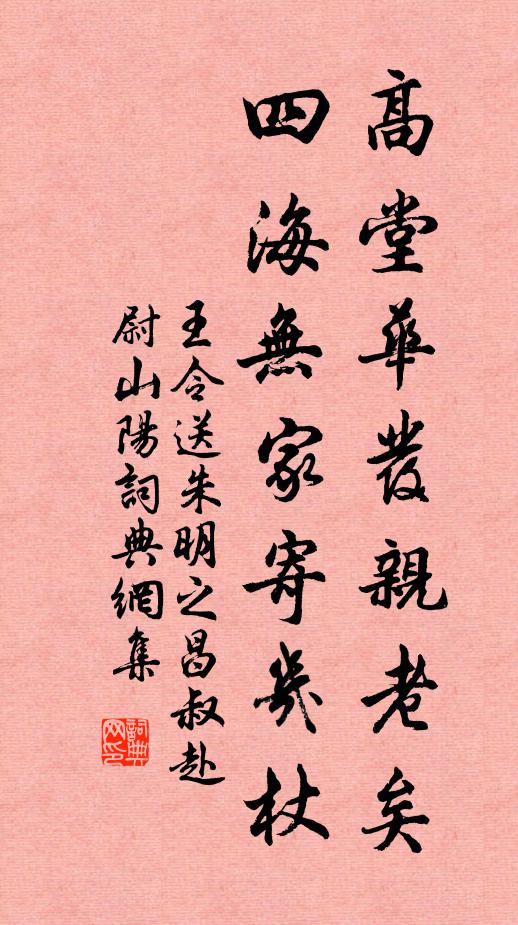 高堂華發親老矣
四海無家寄幾杖
王令送朱明之昌叔赴
尉山陽詞典網集
詞典
网印